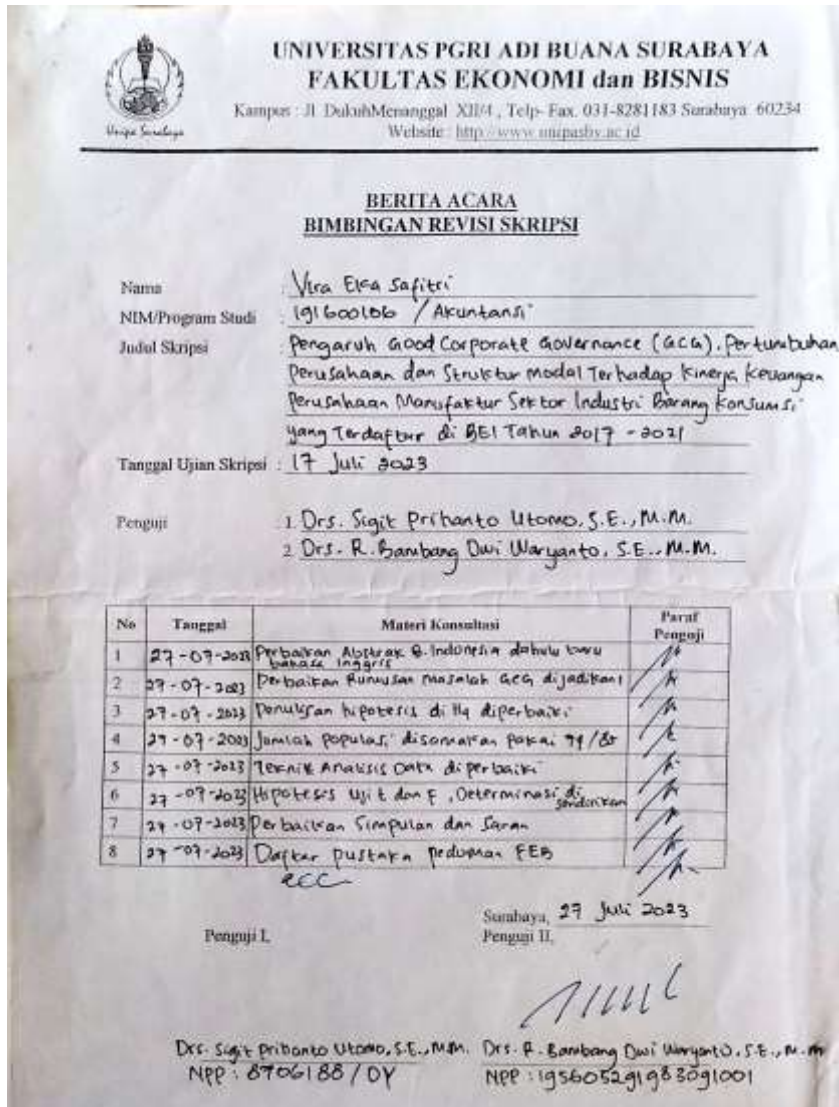 UNIVERSITAS PGRI ADI BUANA SURABAYA
FAKULTAS EKONOMI dan BISNIS
Kampus : Jl DukuhMenanggal XII/4 , Telp- Fax. 031-8281183 Surabaya 60234
Website : http://www.unipasby.ac.id
Unipa Surabaya
BERITA ACARA
BIMBINGAN REVISI SKRIPSI
Nama : Vira Elsa Safitri
NIM/Program Studi : 191600106 / Akuntansi
Judul Skripsi : Pengaruh Good Corporate Governance (GCG), Pertumbuhan
Perusahaan dan Struktur Modal Terhadap Kinerja Keuangan
Perusahaan Manufaktur Sektor Industri Barang Konsumsi
yang Terdaftar di BEI Tahun 2017 - 2021
Tanggal Ujian Skripsi : 17 Juli 2023
Penguji 1. Drs. Sigit Prihanto Utomo, S.E., M.M.
2. Drs. R. Bambang Dwi Waryanto, S.E., M.M.
No Tanggal Materi Konsultasi Paraf Penguji
1 27-07-2023 Perbaikan Abstrak B. Indonesia dahulu baru bahasa Inggris
2 27-07-2023 Perbaikan Rumusan masalah GCG dijadikan 1
3 27-07-2023 Penulisan hipotesis di H4 diperbaiki
4 27-07-2023 Jumlah populasi disamakan pakai
5 27-07-2023 Teknik Analisis Data diperbaiki
6 27-07-2023 Hipotesis Uji t dan F, Determinasi di sendirikan
7 27-07-2023 Perbaikan Simpulan dan Saran
8 27-07-2023 Daftar pustaka pedoman FEB
acc
Surabaya, 27 Juli 2023
Penguji I, Penguji II,
Drs. Sigit Prihanto Utomo, S.E., M.M. Drs. R. Bambang Dwi Waryanto, S.E., M.M
NPP : 8706188 / DY NPP : 195605291983091001